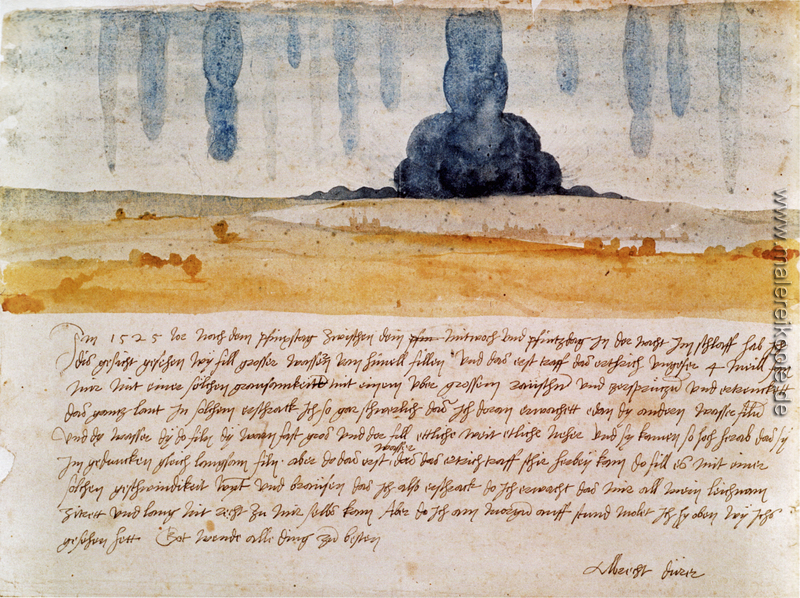 Im 1525 Jor nach dem pfinxstag zwischen dem mitwoch und pfintzdag in der nacht im schlaff hab ich
dis gesicht gesehen wy fill grosser wassern vom himell fillen Und das erst traff das erthrich ungefer 4 meill
fan mir mit einer solchen grausamkeitt mit einem uber grossem raüschn und zersprützn und ertrenckett
das gantz lant In solchem erschrack ich so gar schwerlich das ich doran erwachett edan dy andern wasser filn
Und dy wasser dy do filn dy warn fast gros und der fill ettliche weit etliche neher und sy kamen so hoch herab das sy
im gedancken gleich langsam filn. aber do das erst wasser das das ertrich traff schir herbey kam do fill es mit einer
solchen geschwindikeit wynt und braüsen das ich also erschrack do ich erwacht das mir all mein leichnam
zitrett und lang nit recht zu mir selbs kam Aber do ich am morgn auff stund molet ich hy oben wy ichs
gesehen hett. Got wende alle ding zu besten
Albrecht dürer
www.malerei-kopie.de